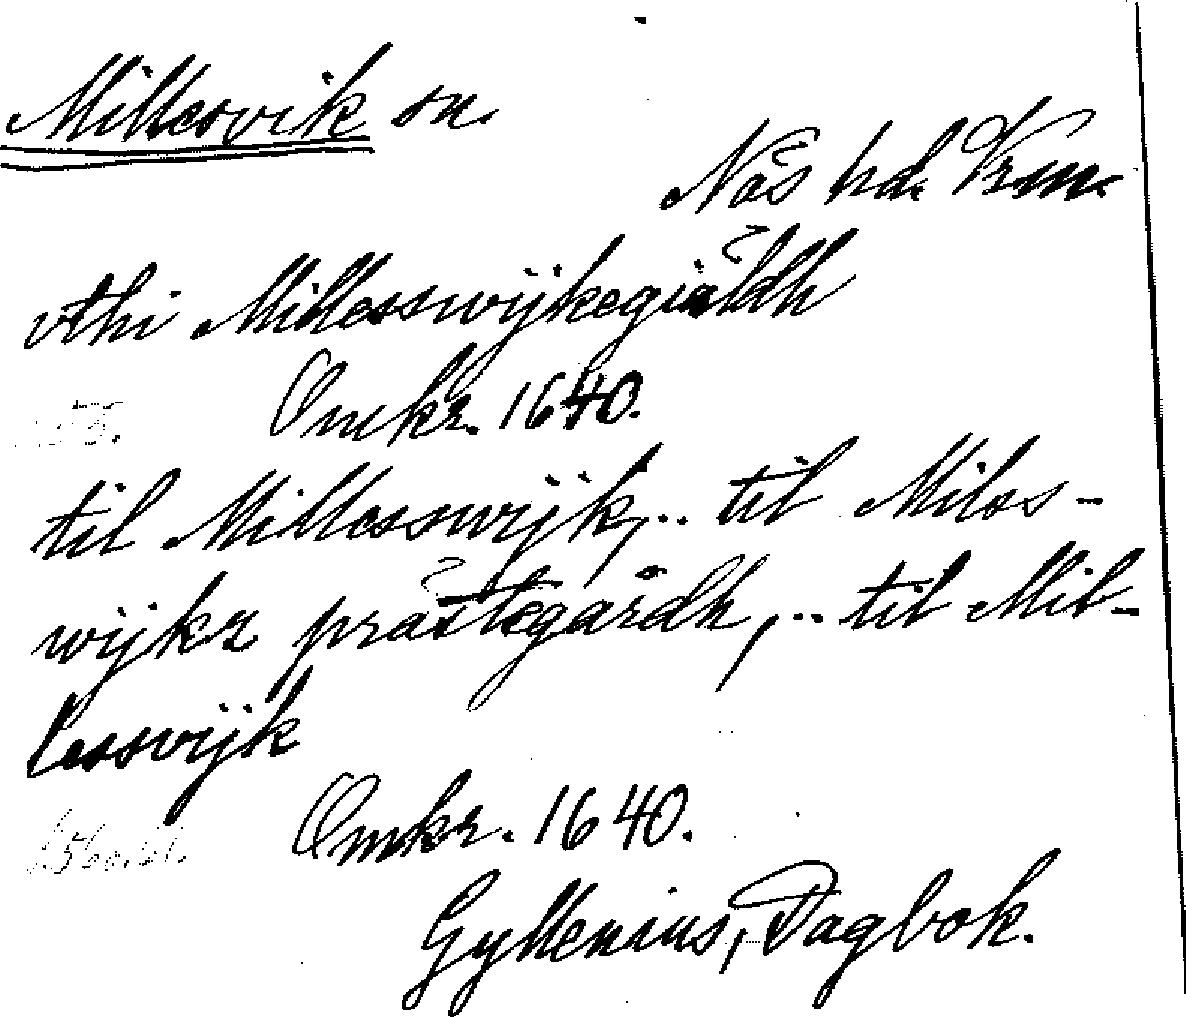 Millesvik sn.
Näs hd. Vrm.
vthi Millesswijkegiäldh
Omkr. 1640.
til Millesswijk,.. til Miles-
wijkz prästegårdh,.. til Mil-
lesswijk
Omkr. 1640.
Gyllenius, Dagbok.